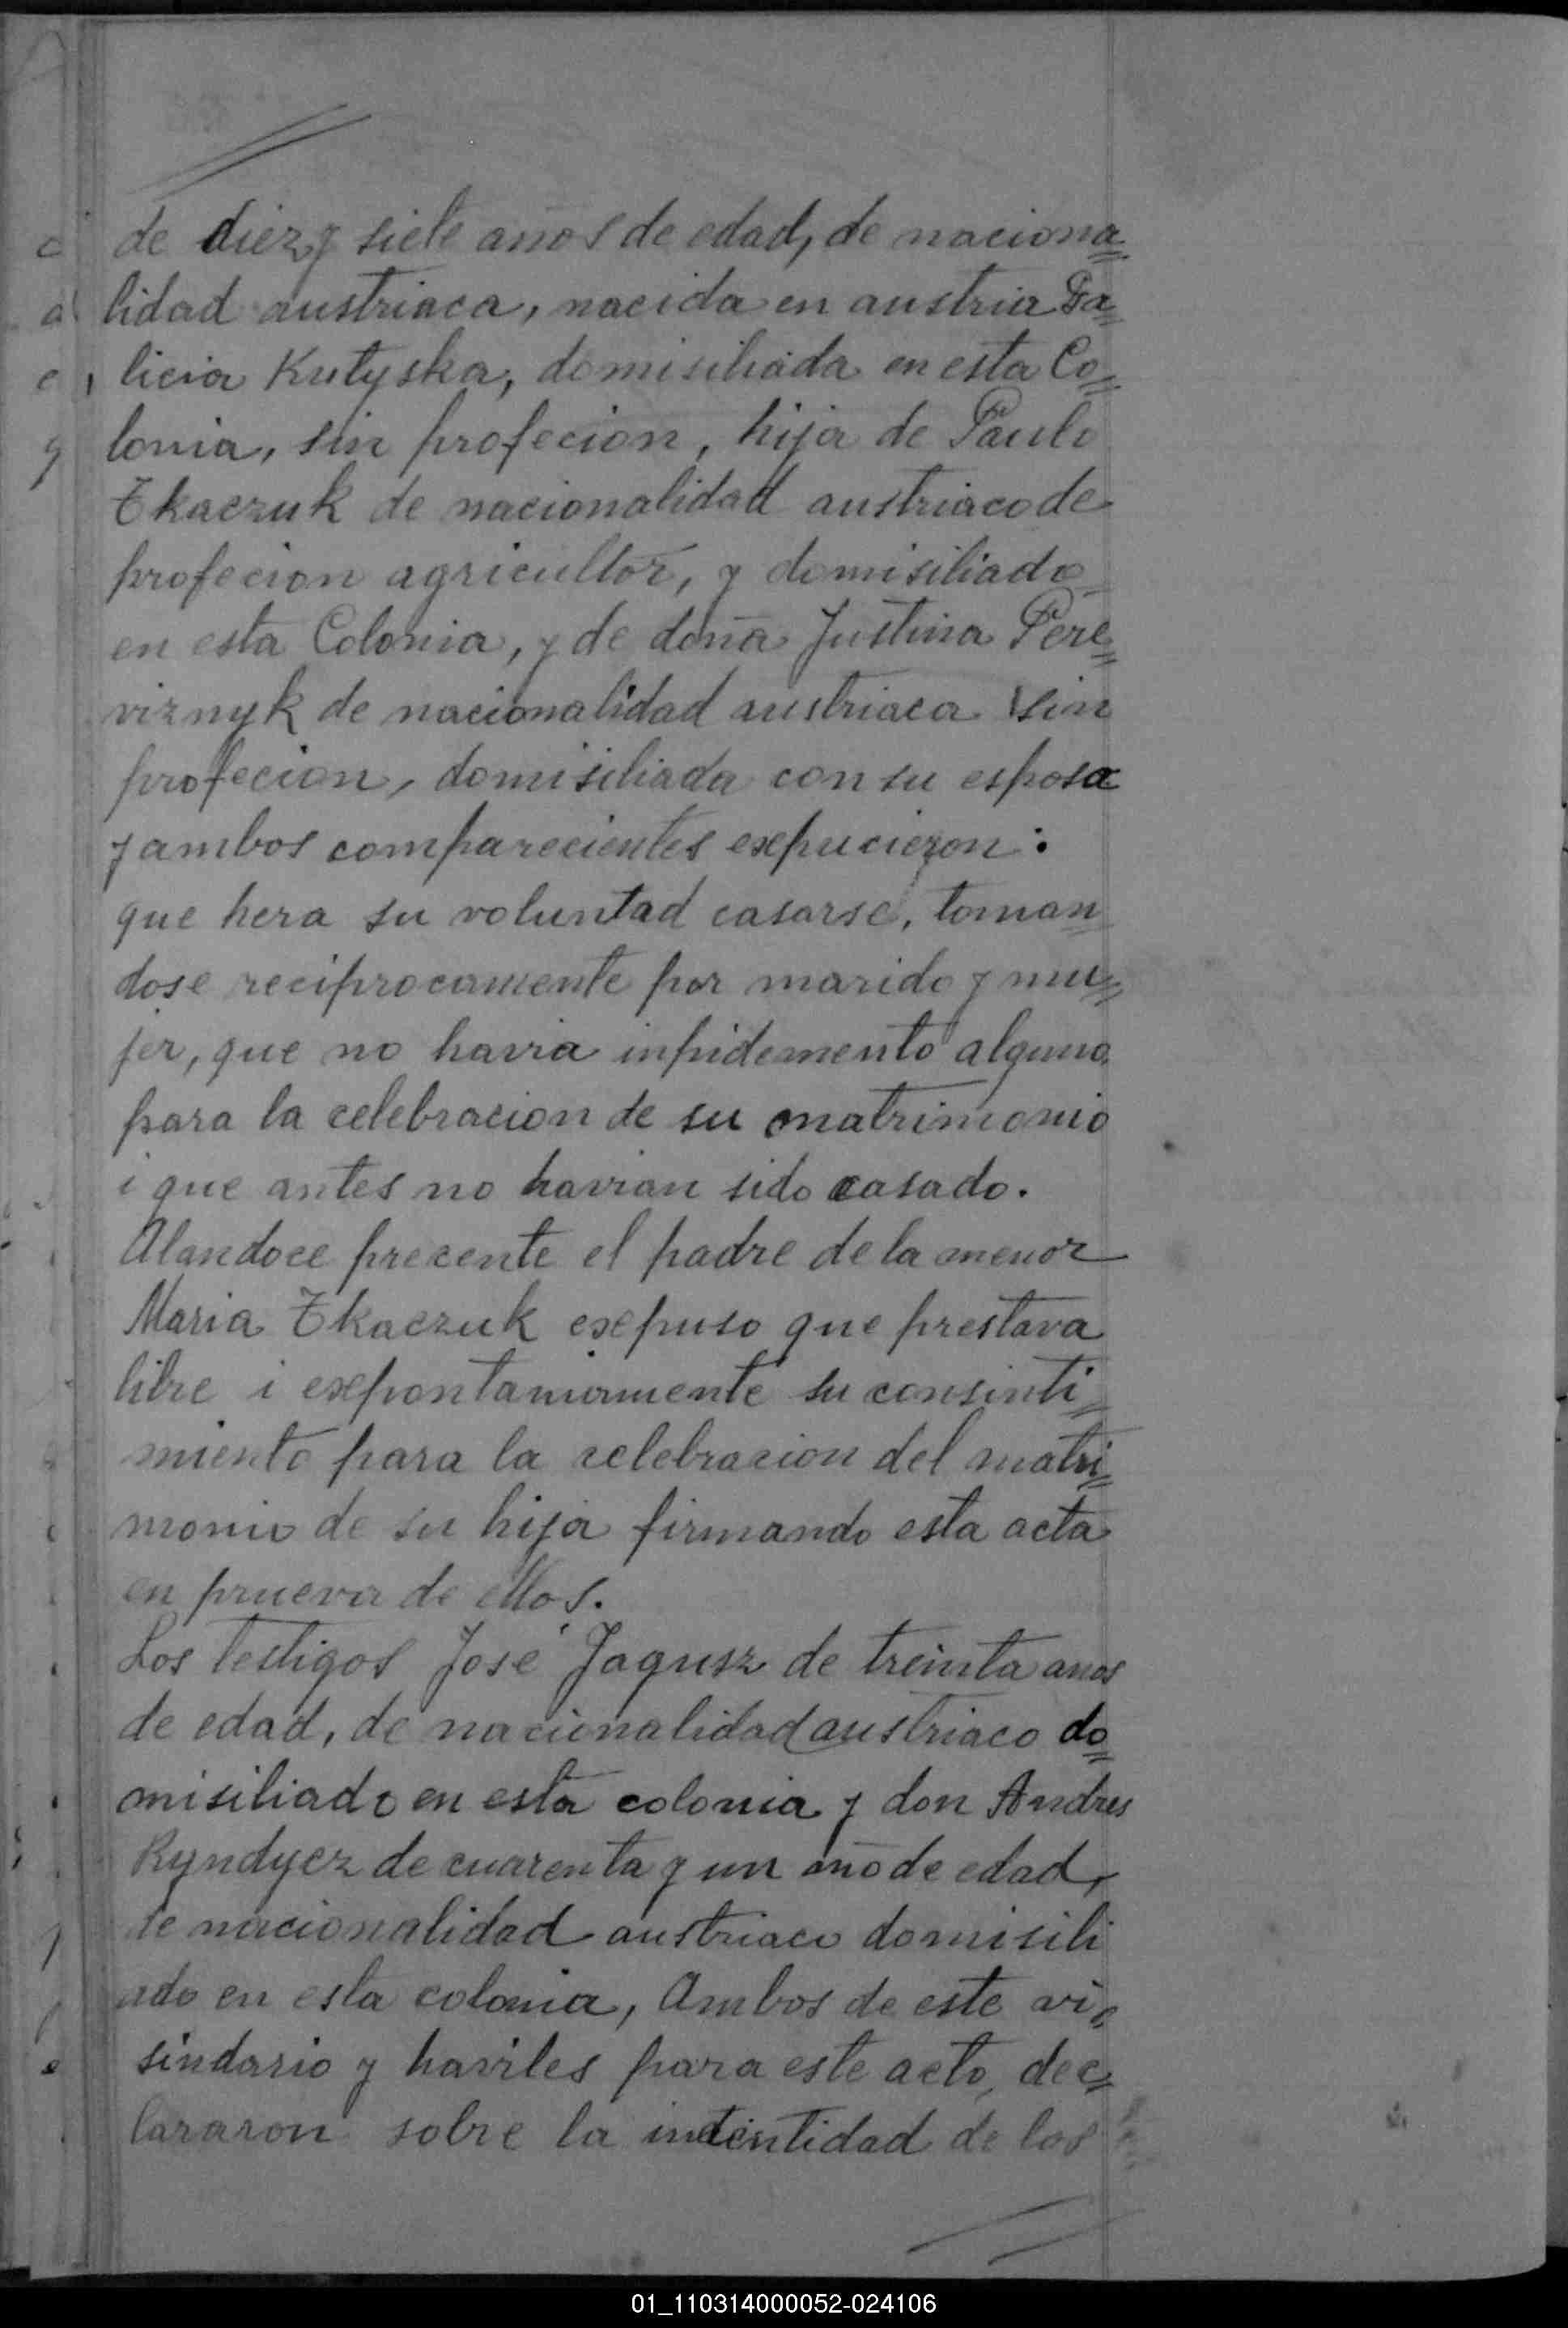 de diez y siete años de edad, de naciona=
lidad austriaca, nacida en austria Ga=
licia Kutyska, domisiliada en esta Co=
lonia, sin profecion, hija de Paulo
Tkaczuk de nacionalidad austriaco de
profecion agricultor, y domisiliado
en esta Colonia, y de doña Justina Pere=
viznyk de nacionalidad austriaca sin
profecion, domisiliada con su esposa
y ambos comparecientes exepucieron:
que hera su voluntad casarse, toman=
dose reciprocamente por marido y mu=
jer, que no havia inpidemento alguno
para la celebracion de su matrimonio
i que antes no havian sido casado.
Alandoce precente el padre de la menor
Maria Tkaczuk exepuso que prestava
libre i exepontaniamente su consinti=
miento para la celebracion del matri=
monio de su hija firmando esta acta
en prueva de ellos.
Los testigos José Jagusz de treinta anos
de edad, de nacionalidad austriaco do=
misiliado en esta colonia y don Andres
Ryndycz de cuarenta y un año de edad,
de nacionalidad austriaco domisili
ado en esta colonia, Ambos de este vi=
sindario y haviles para este acto, dec=
lararon sobre la indentidad de los
01_110314000052-024106